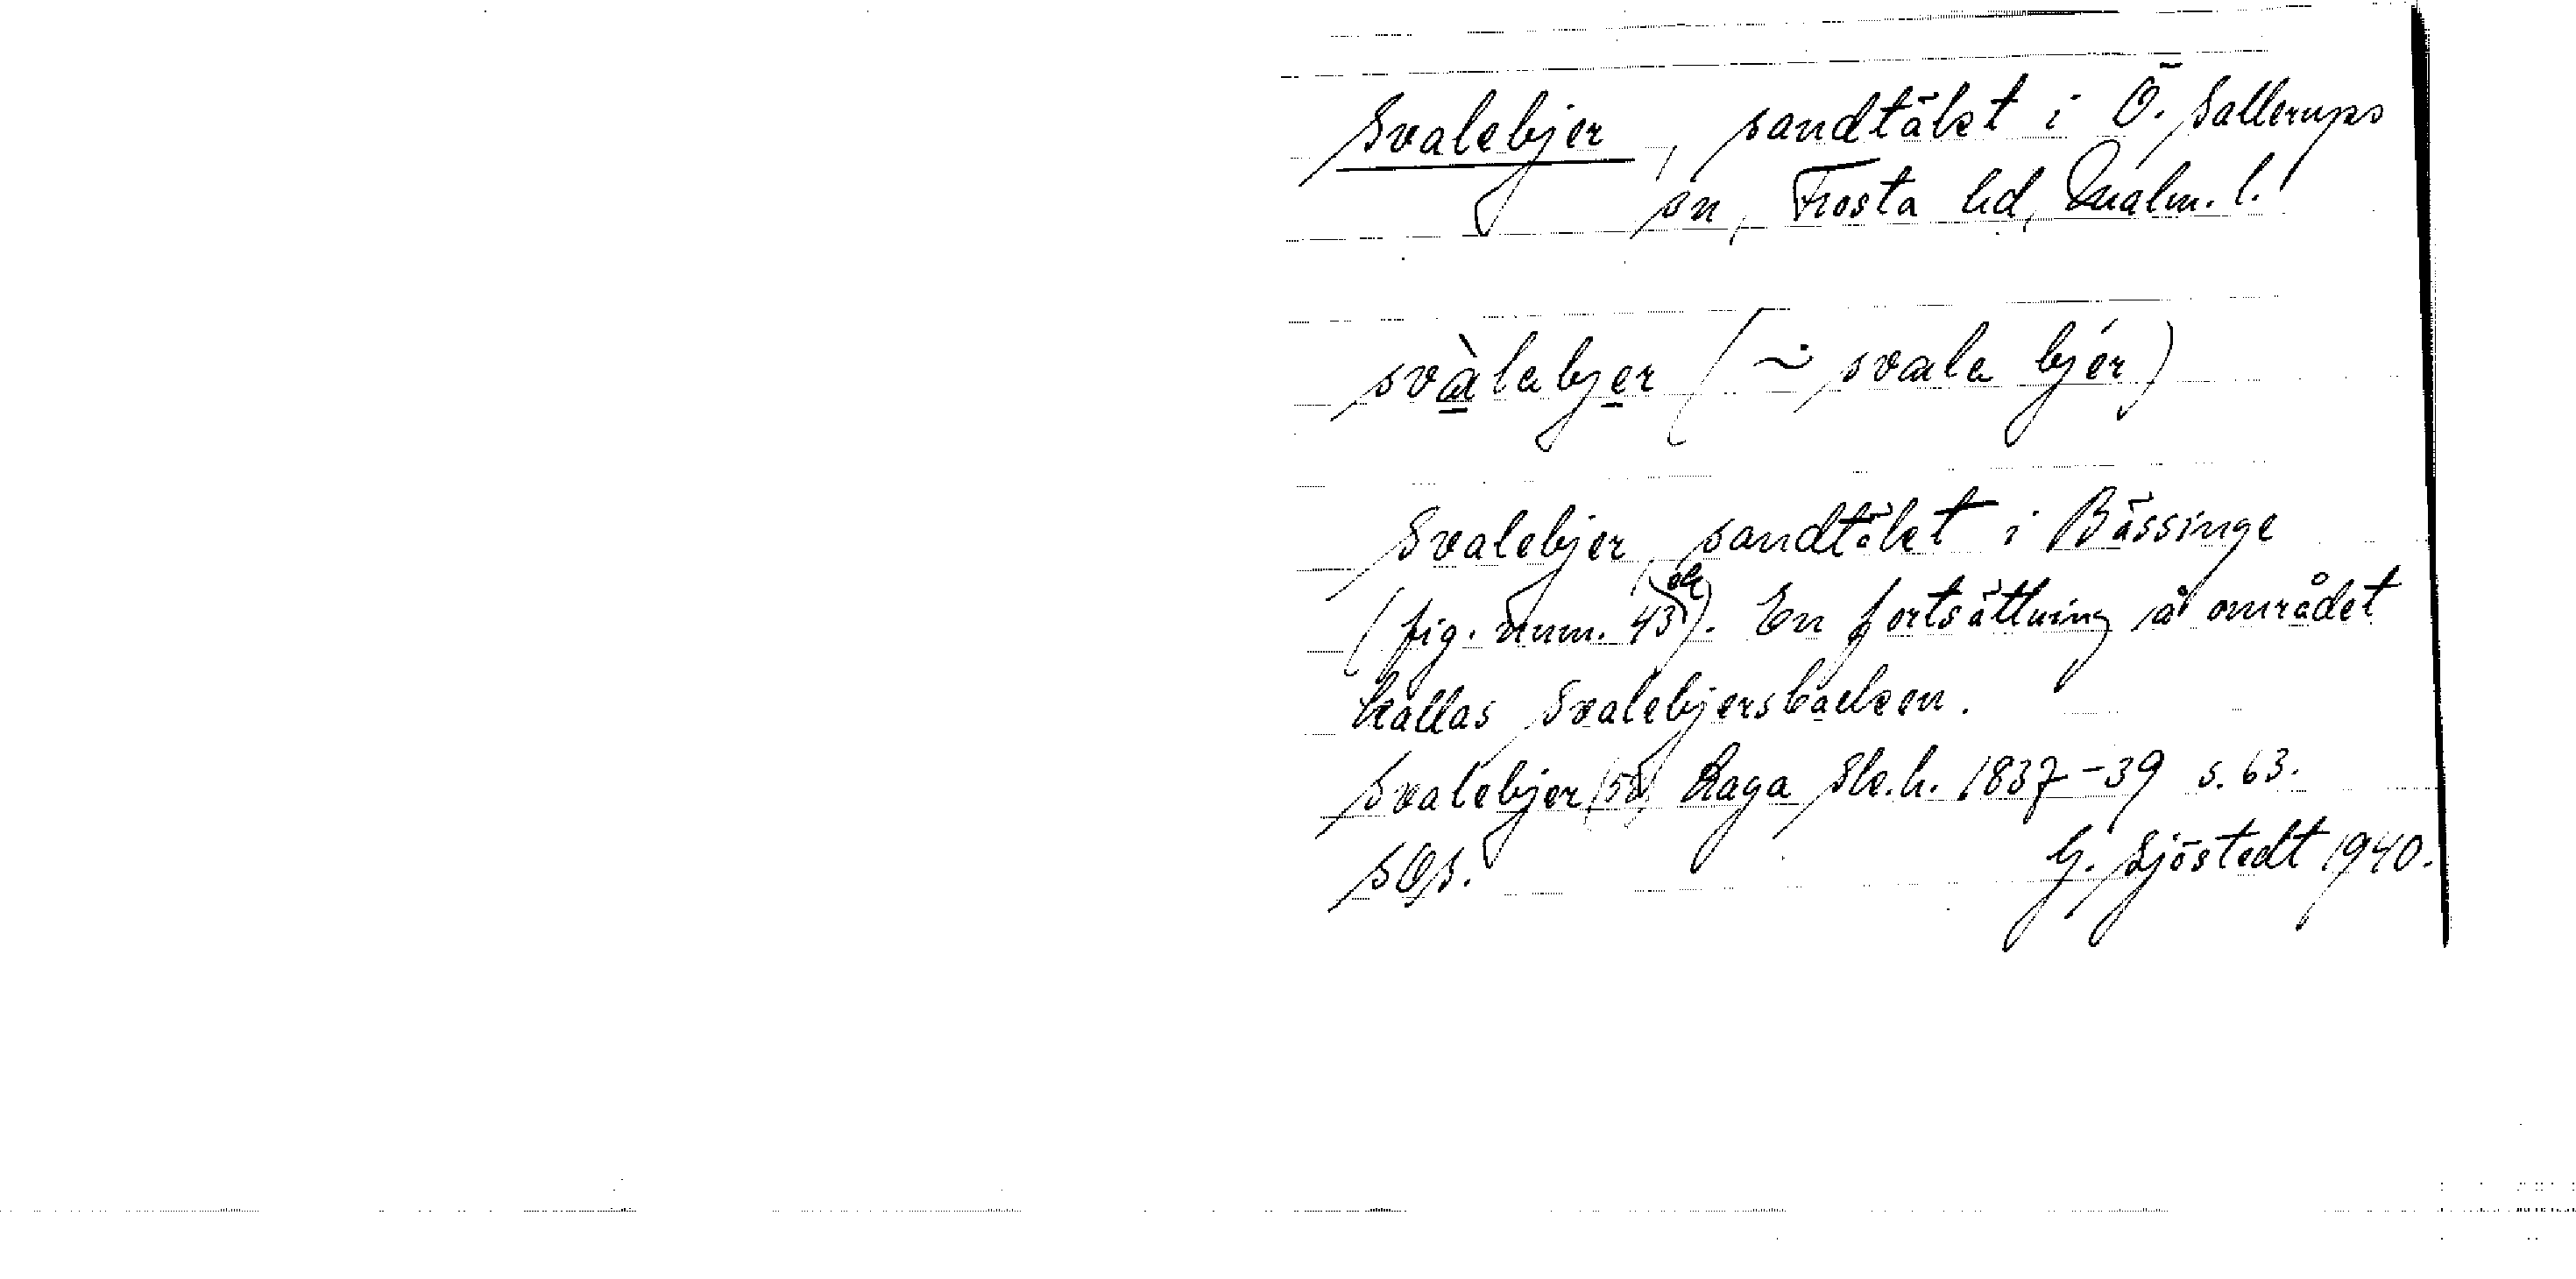 Svalebjer, sandtäkt i Ö. Sallerups
sn, Frosta hd, Malm. l.
svàlabjer (~ svala bjér)
Svalebjer, sandtäkt i Bässinge
(fig. num. 43). En fortsättning å området
kallas Svalebjersbacken.
Svalebjer (58) Laga Sk.h. 1837-39 s. 63.
SOS. G. Sjöstedt 1940.